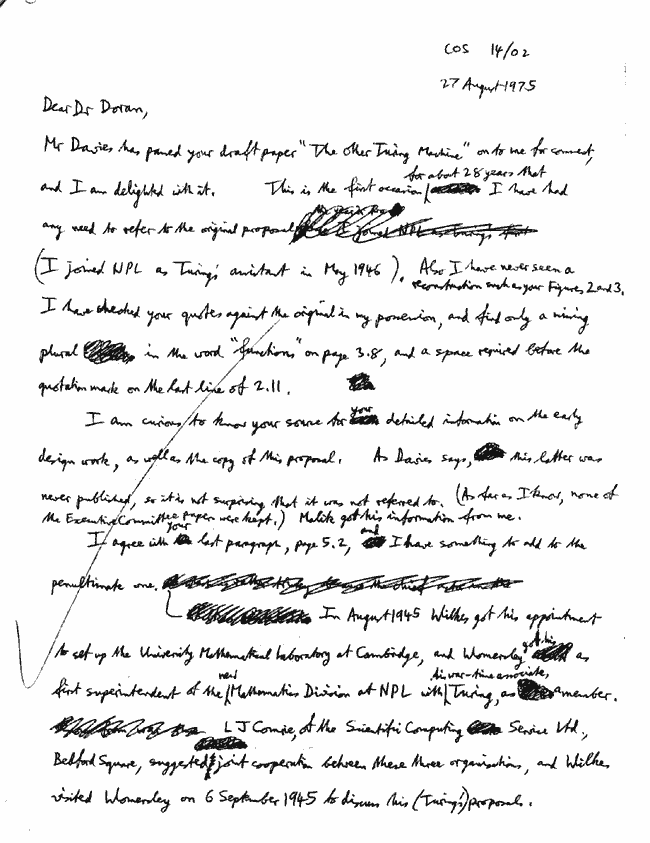 COS 14/02
27 August 1975
Dear Dr Doran,
Mr Davies has passed your draft paper "The Other Turing Machine" on to me for comment,
for about 28 years that
and I am delighted with it. This is the first occasion I have had
any need to refer to the original proposal
(I joined NPL as Turing's assistant in May 1946). Also I have never seen a
reconstruction such as your Figures 2 and 3.
I have checked your quotes against the original in my possession, and find only a missing
plural in the word "functions" on page 3.8, and a space required before the
quotation mark on the last line of 2.11.
I am curious to know your source for your detailed information on the early
design work, as well as the copy of this proposal. As Davies says, this latter was
never published, so it is not surprising that it was not referred to. (As far as I know, none of
the Executive Committee papers were kept.) Malik got his information from me.
I agree with your last paragraph, page 5.2, and I have something to add to the
penultimate one.
In August 1945 Wilkes got his appointment
to set up the University Mathematical Laboratory at Cambridge, and Womersley got his as
new his war-time associate,
first superintendent of the Mathematics Division at NPL with Turing, as a member.
L J Comrie, of the Scientific Computing Service Ltd.,
Bedford Square, suggested joint cooperation between these three organisations, and Wilkes
visited Womersley on 6 September 1945 to discuss his (Turing's) proposals.